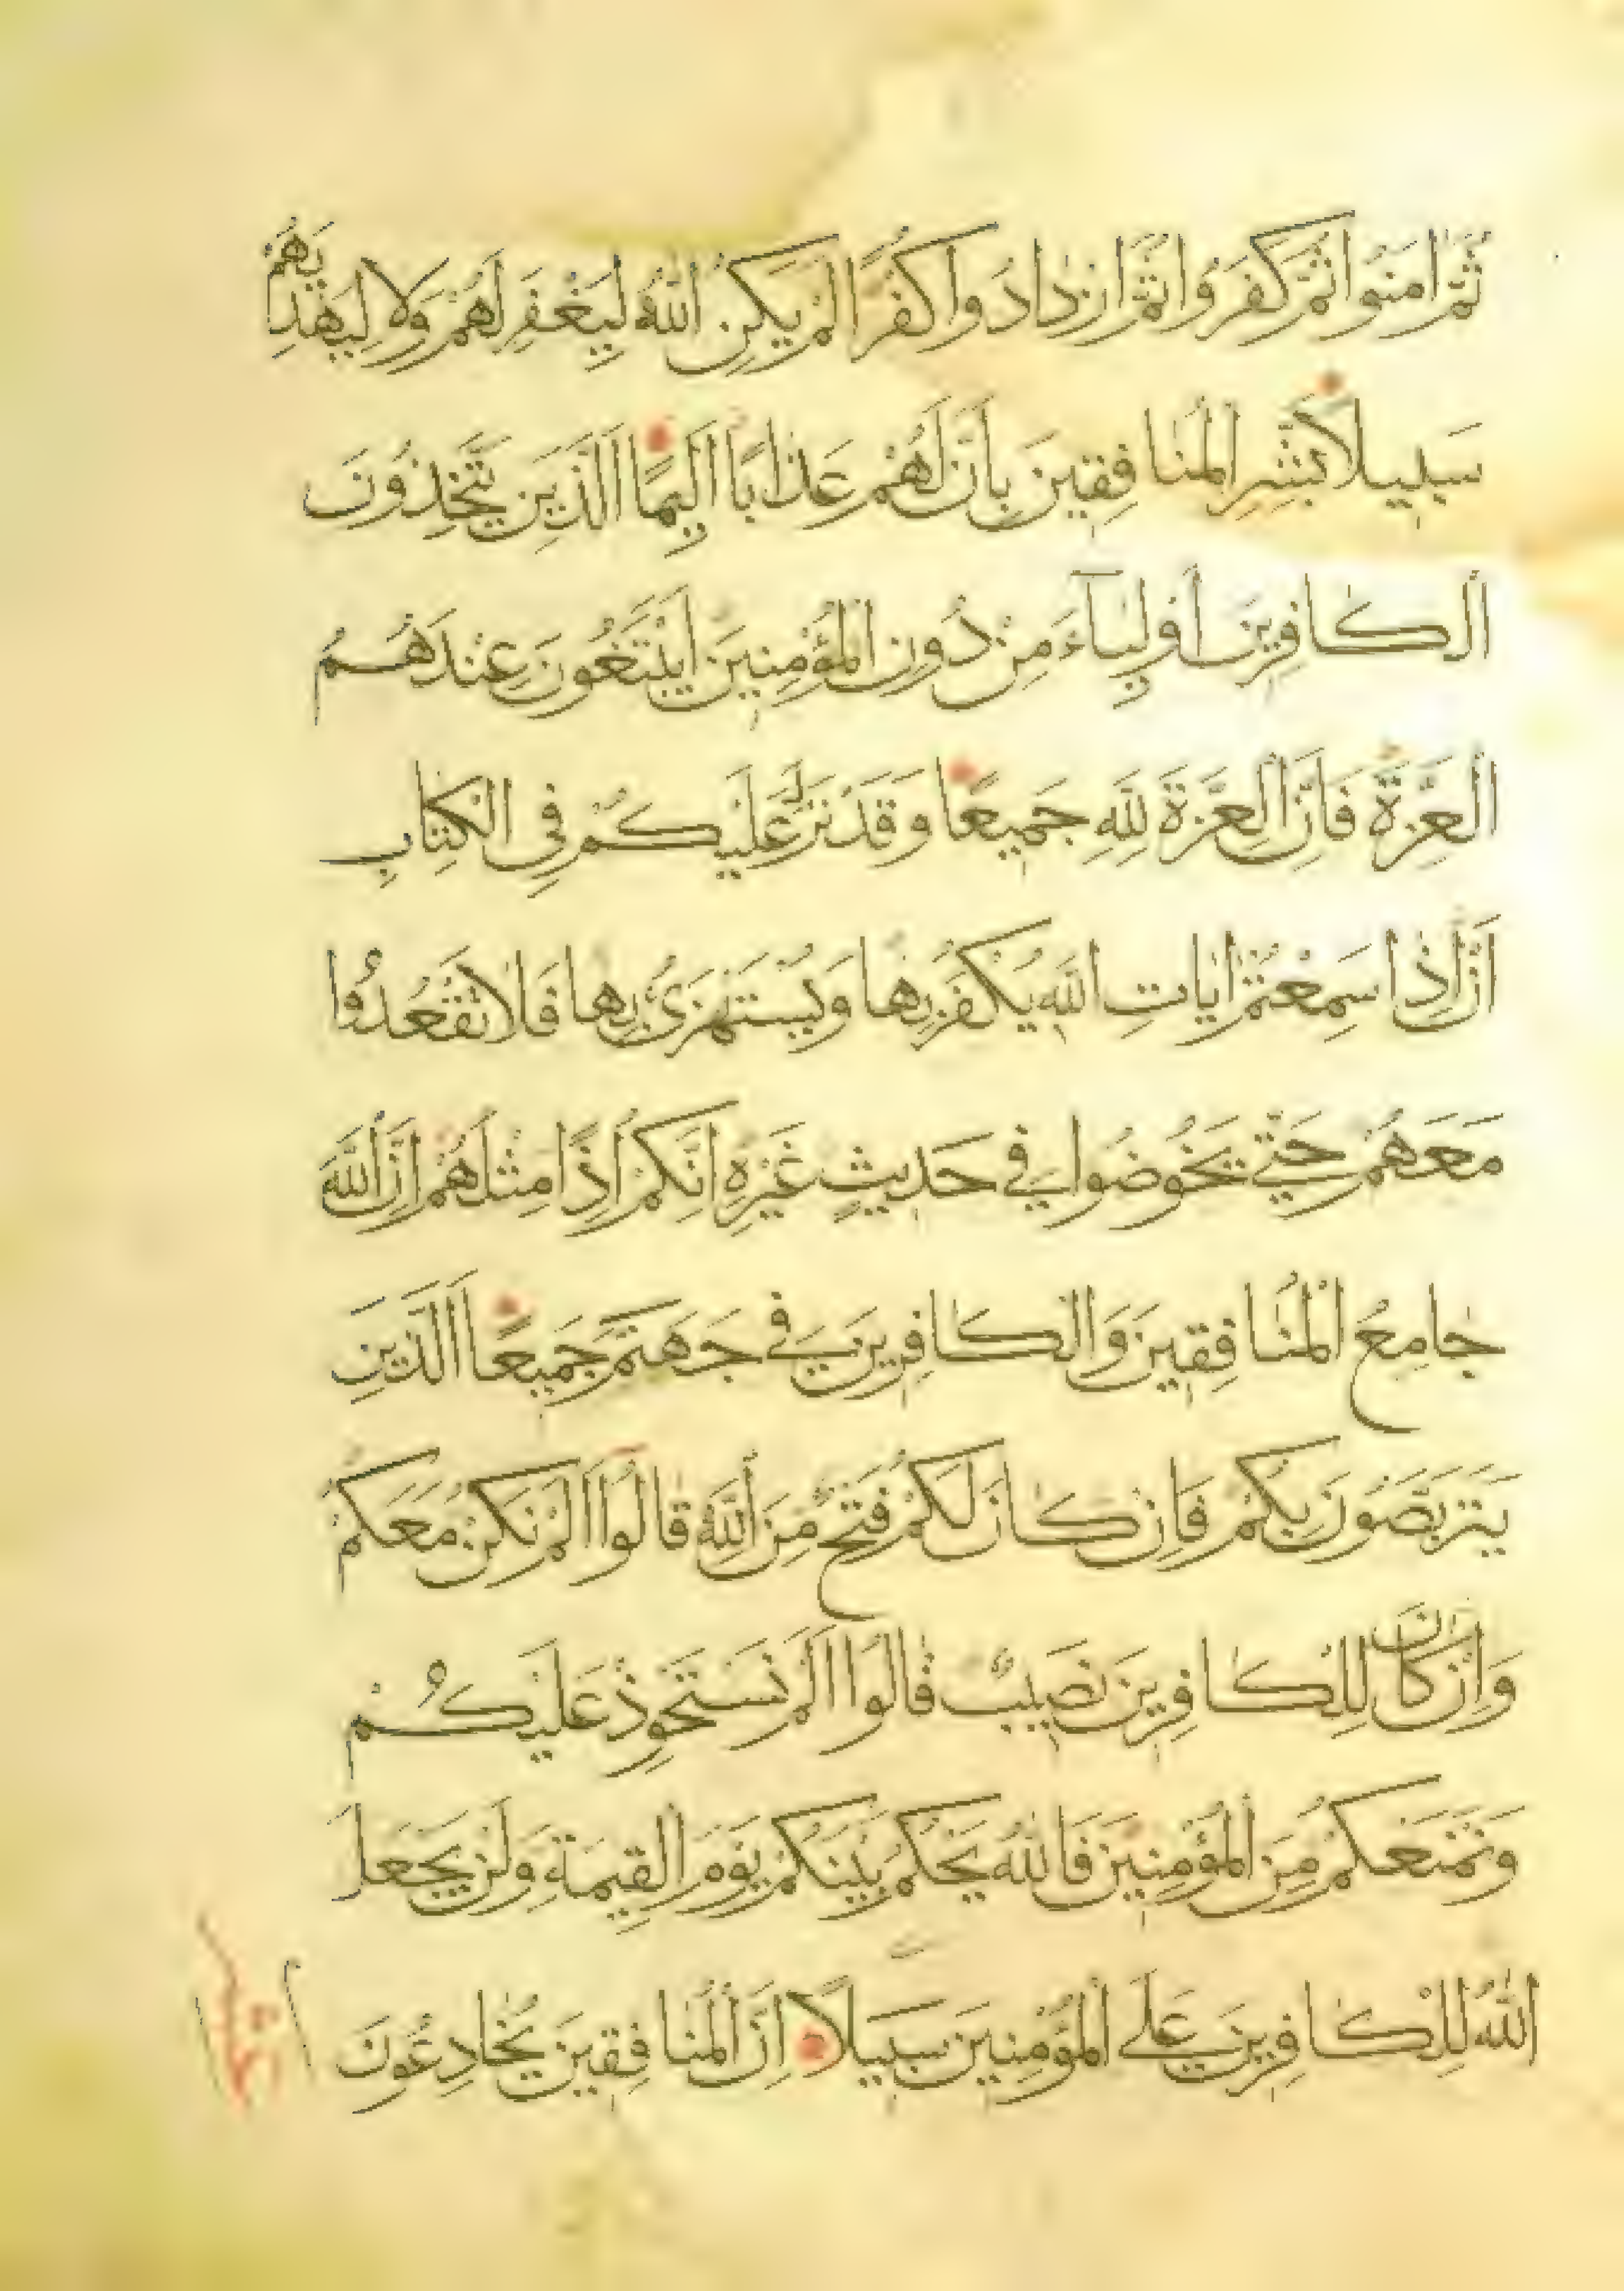 ثُمَّ اٰمَنُوا ثُمَّ كَفَرُوا ثُمَّ ازْدٰادُوا كُفْرًا لَمْ يَكُنِ اللّٰهُ لِيَغْفِرَ لَهُمْ وَلَا لِيَهْدِيَهُمْ
سَبِيلًا بَشِّرِ الْمُنٰافِقِينَ بِاَنَّ لَهُمْ عَذٰابًا اَلِيمًا اَلَّذِينَ يَتَّخِذُونَ
الْكٰافِرِينَ اَوْلِيٰٓاءَ مِنْ دُونِ الْمُؤْمِنِينَ اَيَبْتَغُونَ عِنْدَهُمُ
الْعِزَّةَ فَاِنَّ الْعِزَّةَ لِلّٰهِ جَمِيعًا وَقَدْ نَزَّلَ عَلَيْكُمْ فِى الْكِتٰابِ
اَنْ اِذٰا سَمِعْتُمْ اٰيٰاتِ اللّٰهِ يُكْفَرُ بِهٰا وَيُسْتَهْزَئُ بِهٰا فَلٰا تَقْعُدُوا
مَعَهُمْ حَتّٰى يَخُوضُوا فِى حَدِيثٍ غَيْرِهِ اِنَّكُمْ اِذًا مِثْلُهُمْ اِنَّ اللّٰهَ
جٰامِعُ الْمُنٰافِقِينَ وَالْكٰافِرِينَ فِى جَهَنَّمَ جَمِيعًا اَلَّذِينَ
يَتَرَبَّصُونَ بِكُمْ فَاِنْ كٰانَ لَكُمْ فَتْحٌ مِنَ اللّٰهِ قٰالُوا اَلَمْ نَكُنْ مَعَكُمْ
وَاِنْ كٰانَ لِلْكٰافِرِينَ نَصِيبٌ قٰالُوا اَلَمْ نَسْتَحْوِذْ عَلَيْكُمْ
وَنَمْنَعْكُمْ مِنَ الْمُؤْمِنِينَ فَاللّٰهُ يَحْكُمُ بَيْنَكُمْ يَوْمَ الْقِيٰمَةِ وَلَنْ يَجْعَلَ
اللّٰهُ لِلْكٰافِرِينَ عَلَى الْمُؤْمِنِينَ سَبِيلًا اِنَّ الْمُنٰافِقِينَ يُخٰادِعُونَ